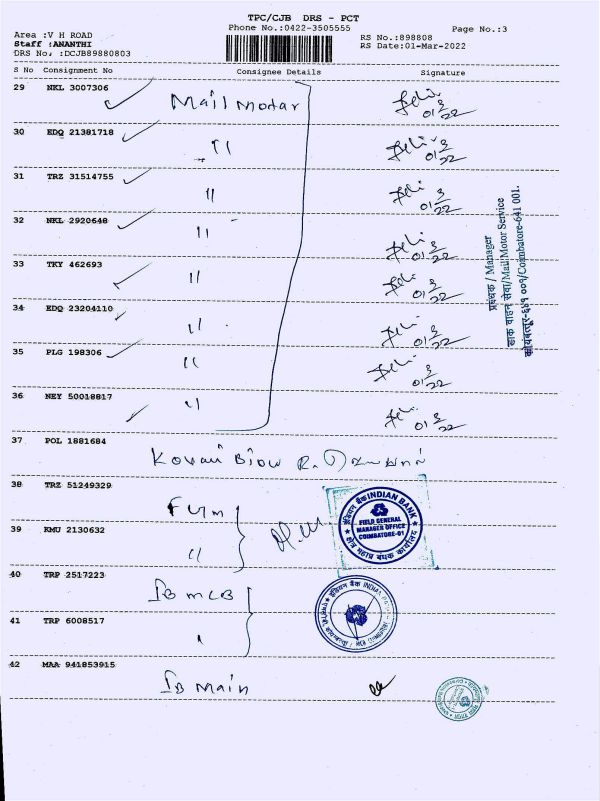 TPC/CJB DRS - PCT
Phone No.:0422-3505555
Page No.:3
Area :V H ROAD
Staff :ANANTHI
DRS No. :DCJB89880803
RS No.:898808
RS Date:01-Mar-2022
S No Consignment No Consignee Details Signature
29 NKL 3007306 Mail Motar
01 3/22
30 EDQ 21381718 "
01 3/22
31 TRZ 31514755 "
01 3/22
32 NKL 2920648 "
01 3/22
33 TKY 462693 "
01 3/22
34 EDQ 23204110 "
01 3/22
35 PLG 198306 "
01 3/22
36 NEY 50018817 "
01 3/22
प्रबंधक / Manager
डाक वाहन सेवा/Mail Motor Service
कोयंबत्तूर-६४१ ००१/Coimbatore-641 001.
37 POL 1881684
38 TRZ 51249329
इंडियन बैंक INDIAN BANK
FIELD GENERAL
MANAGER OFFICE
COIMBATORE-01
39 KMU 2130632 "
40 TRP 2517223 IB MCB
इंडियन बैंक INDIAN
41 TRP 6008517
42 MAA 941853915 IB Main